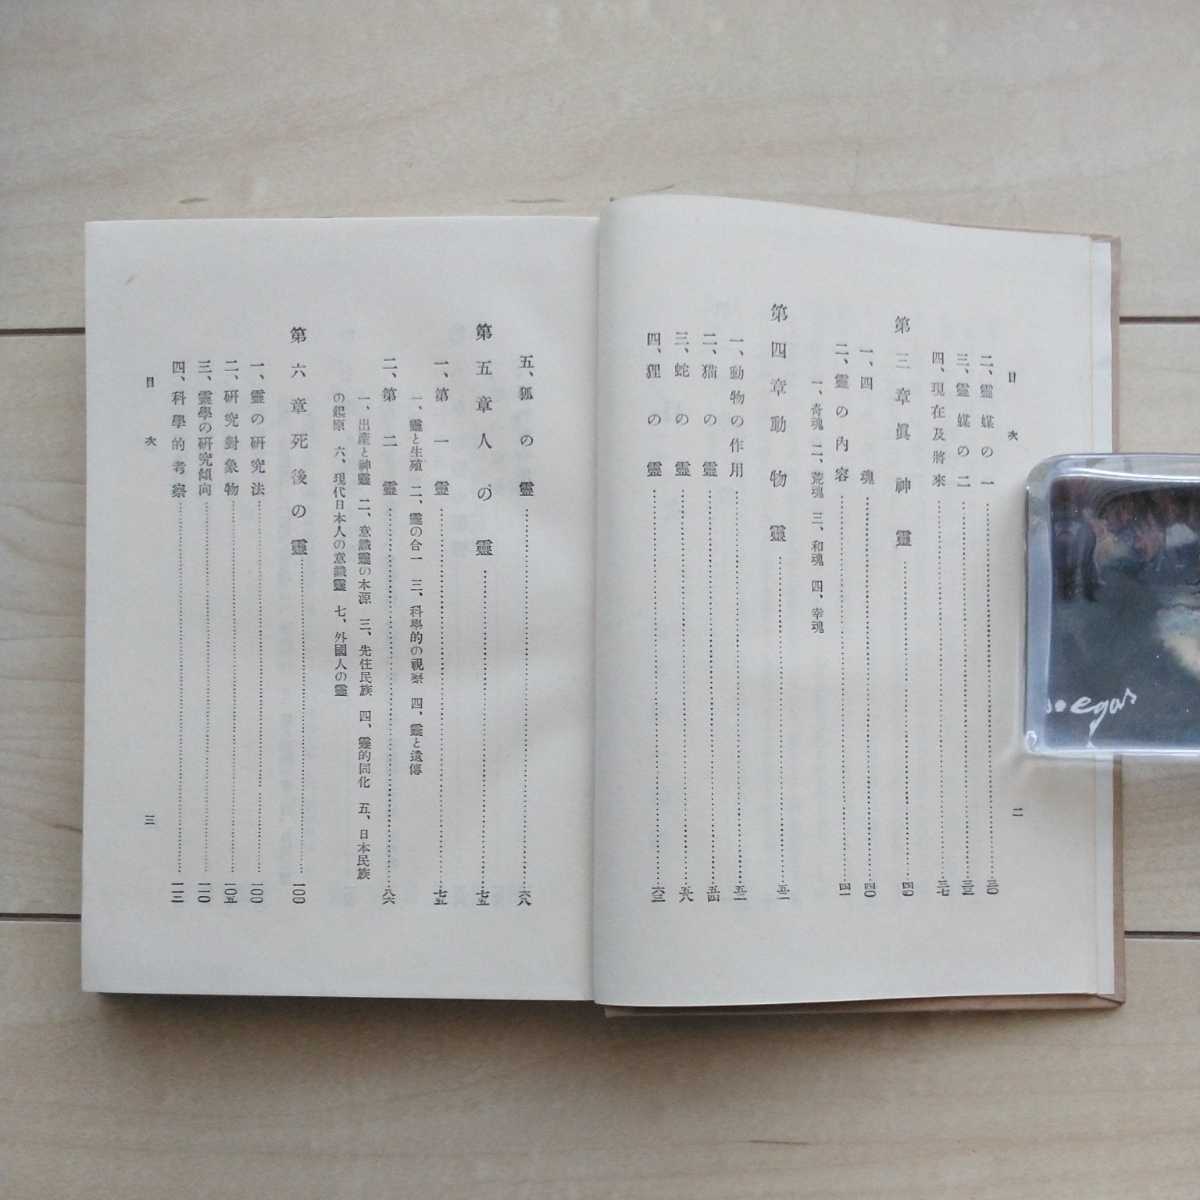 目次
二、靈媒の一……三〇
三、靈媒の二……三三
四、現在及將來……三七
第三章眞神靈……四〇
一、四魂……四〇
二、靈の內容……四一
一、奇魂 二、荒魂 三、和魂 四、幸魂
第四章動物靈……五一
一、動物の作用……五一
二、猫の靈……五四
三、蛇の靈……五八
四、狸の靈……六三
二
五、狐の靈……六八
第五章人の靈……七五
一、第一靈……七五
一、靈と生殖 二、靈の合一 三、科學的の視察 四、靈と遺傳
二、第二靈……八六
一、出產と神靈 二、意識靈の本源 三、先住民族 四、靈的同化 五、日本民族
の起原 六、現代日本人の意識靈 七、外國人の靈
第六章死後の靈……一〇〇
一、靈の硏究法……一〇〇
二、硏究對象物……一〇五
三、靈學の硏究傾向……一一〇
四、科學的考察……一一二
目次
三
egas